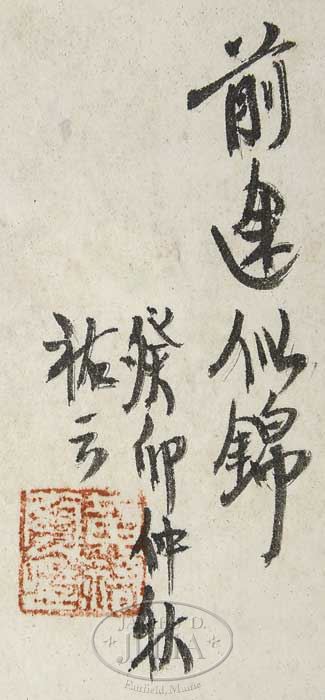 前途似錦
癸卯仲秋
祐云
JAMES D.
JULIA
Fairfield, Maine